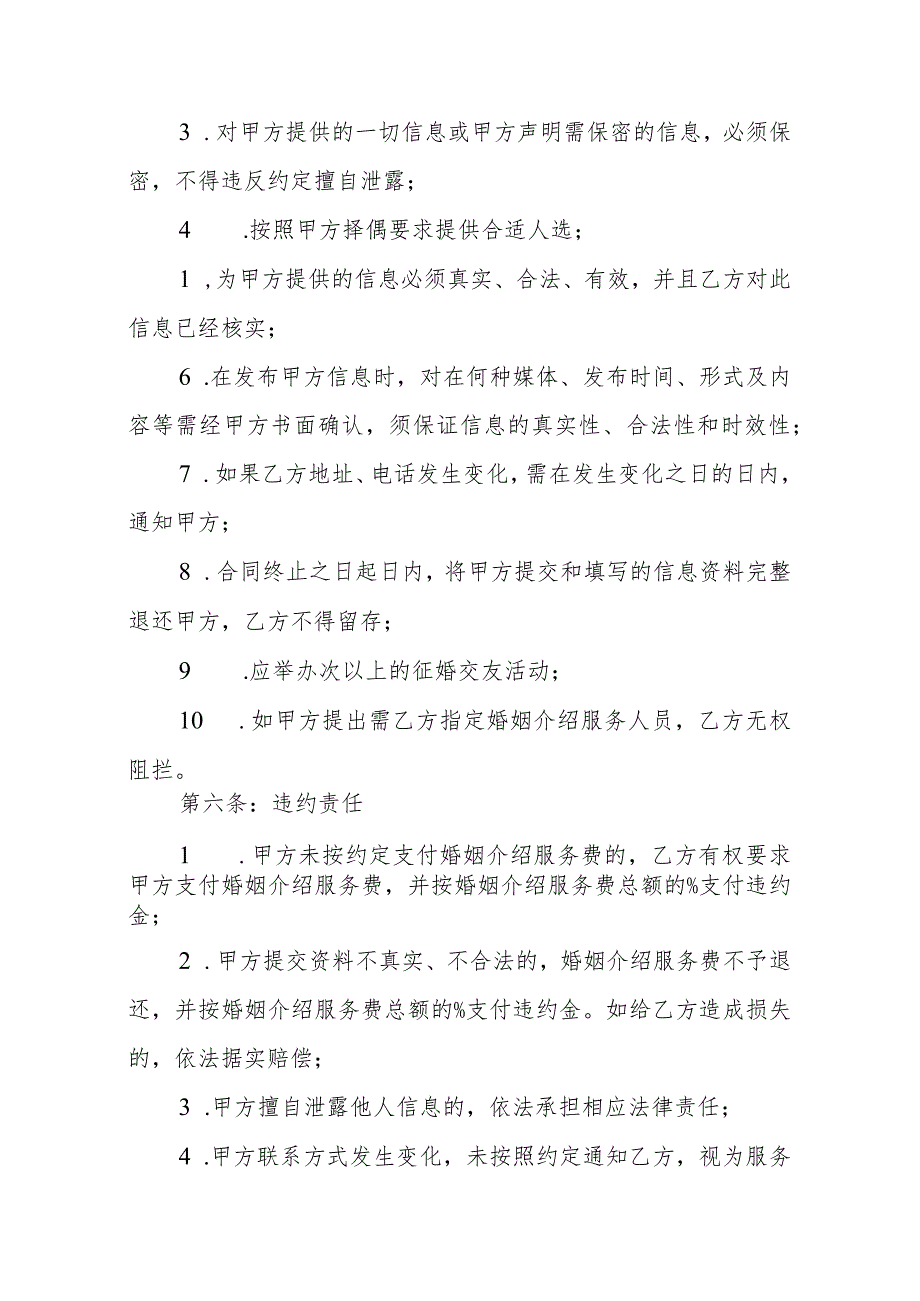 3 .对甲方提供的一切信息或甲方声明需保密的信息，必须保
密，不得违反约定擅自泄露；
4 .按照甲方择偶要求提供合适人选；
1 ,为甲方提供的信息必须真实、合法、有效，并且乙方对此
信息已经核实；
6 .在发布甲方信息时，对在何种媒体、发布时间、形式及内
容等需经甲方书面确认，须保证信息的真实性、合法性和时效性；
7 .如果乙方地址、电话发生变化，需在发生变化之日的日内，
通知甲方；
8 .合同终止之日起日内，将甲方提交和填写的信息资料完整
退还甲方，乙方不得留存；
9 .应举办次以上的征婚交友活动；
10 .如甲方提出需乙方指定婚姻介绍服务人员，乙方无权
阻拦。
第六条：违约责任
1 .甲方未按约定支付婚姻介绍服务费的，乙方有权要求
甲方支付婚姻介绍服务费，并按婚姻介绍服务费总额的%支付违约
金；
2 .甲方提交资料不真实、不合法的，婚姻介绍服务费不予退
还，并按婚姻介绍服务费总额的%支付违约金。如给乙方造成损失
的，依法据实赔偿；
3 .甲方擅自泄露他人信息的，依法承担相应法律责任；
4 .甲方联系方式发生变化，未按照约定通知乙方，视为服务